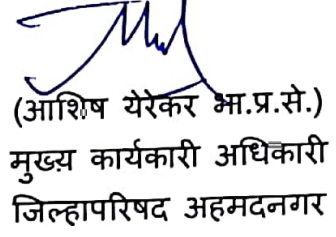 (आशिष येरेकर भा.प्र.से.)
मुख्य कार्यकारी अधिकारी
जिल्हापरिषद अहमदनगर